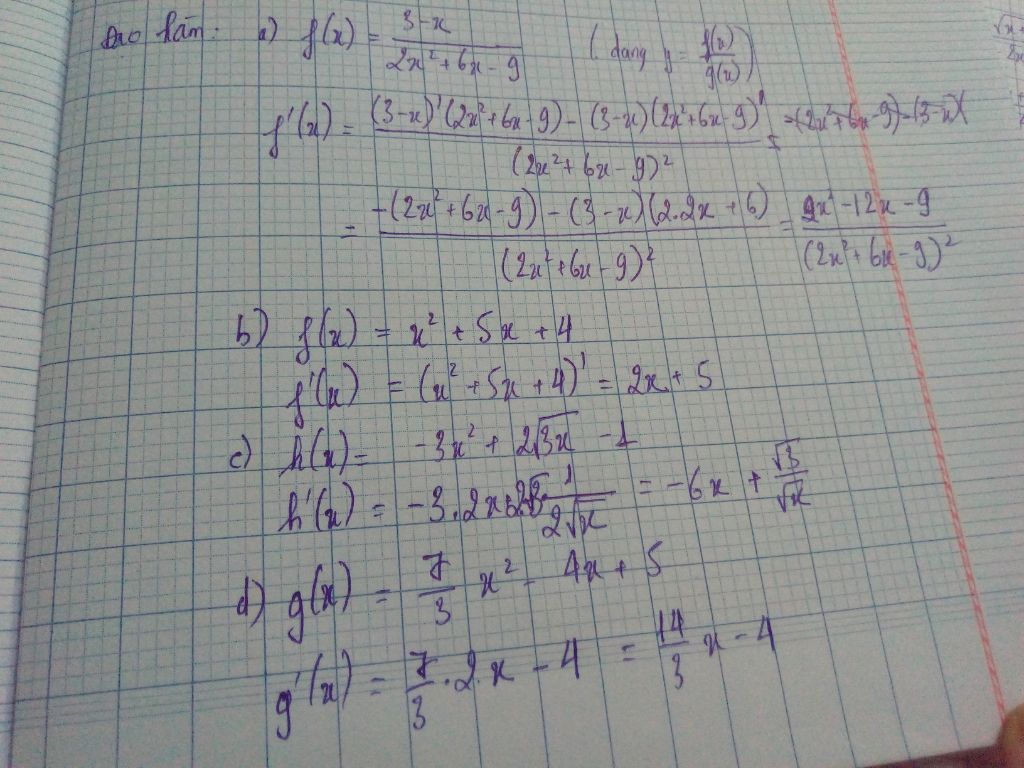 Đạo hàm: a) f(x) = (3-x)/(2x² + 6x - 9) (dạng y = f(x)/g(x))
f'(x) = ((3-x)'(2x² + 6x - 9) - (3-x)(2x² + 6x - 9)')/(2x² + 6x - 9)² = -(2x² + 6x - 9) - (3-x)(
= (-(2x² + 6x - 9) - (3-x)(2.2x + 6))/(2x² + 6x - 9)² = (2x² - 12x - 9)/(2x² + 6x - 9)²
b) f(x) = x² + 5x + 4
f'(x) = (x² + 5x + 4)' = 2x + 5
c) h(x) = -3x² + 2√3x - 1
h'(x) = -3.2x + 2√3 . 1/(2√x) = -6x + √3/√x
d) g(x) = 7/3 x² - 4x + 5
g'(x) = 7/3 . 2.x - 4 = 14/3 x - 4